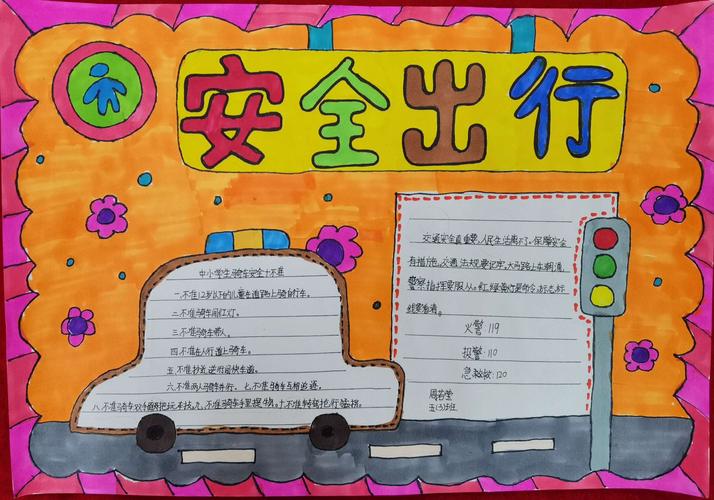 安全出行
中小学生骑车安全十不准
一.不准12岁以下的儿童在道路上骑自行车。
二.不准骑车闯红灯。
三.不准骑车带人。
四.不准在人行道上骑车。
五.不准抄近逆行闯快车道。
六.不准两人骑车并行。七.不准骑车互相追逐。
八.不准骑车双手离把玩杂技。九.不准骑车手里提物。十.不准转弯抢行猛拐。
交通安全真重要,人民生活离不了。保障安全
有措施,交通法规要记牢。大马路上车潮涌,
警察指挥要服从。红绿黄灯是命令,标志标
线要看清。
火警:119
报警:110
急救:120
周若莹
五(3)班